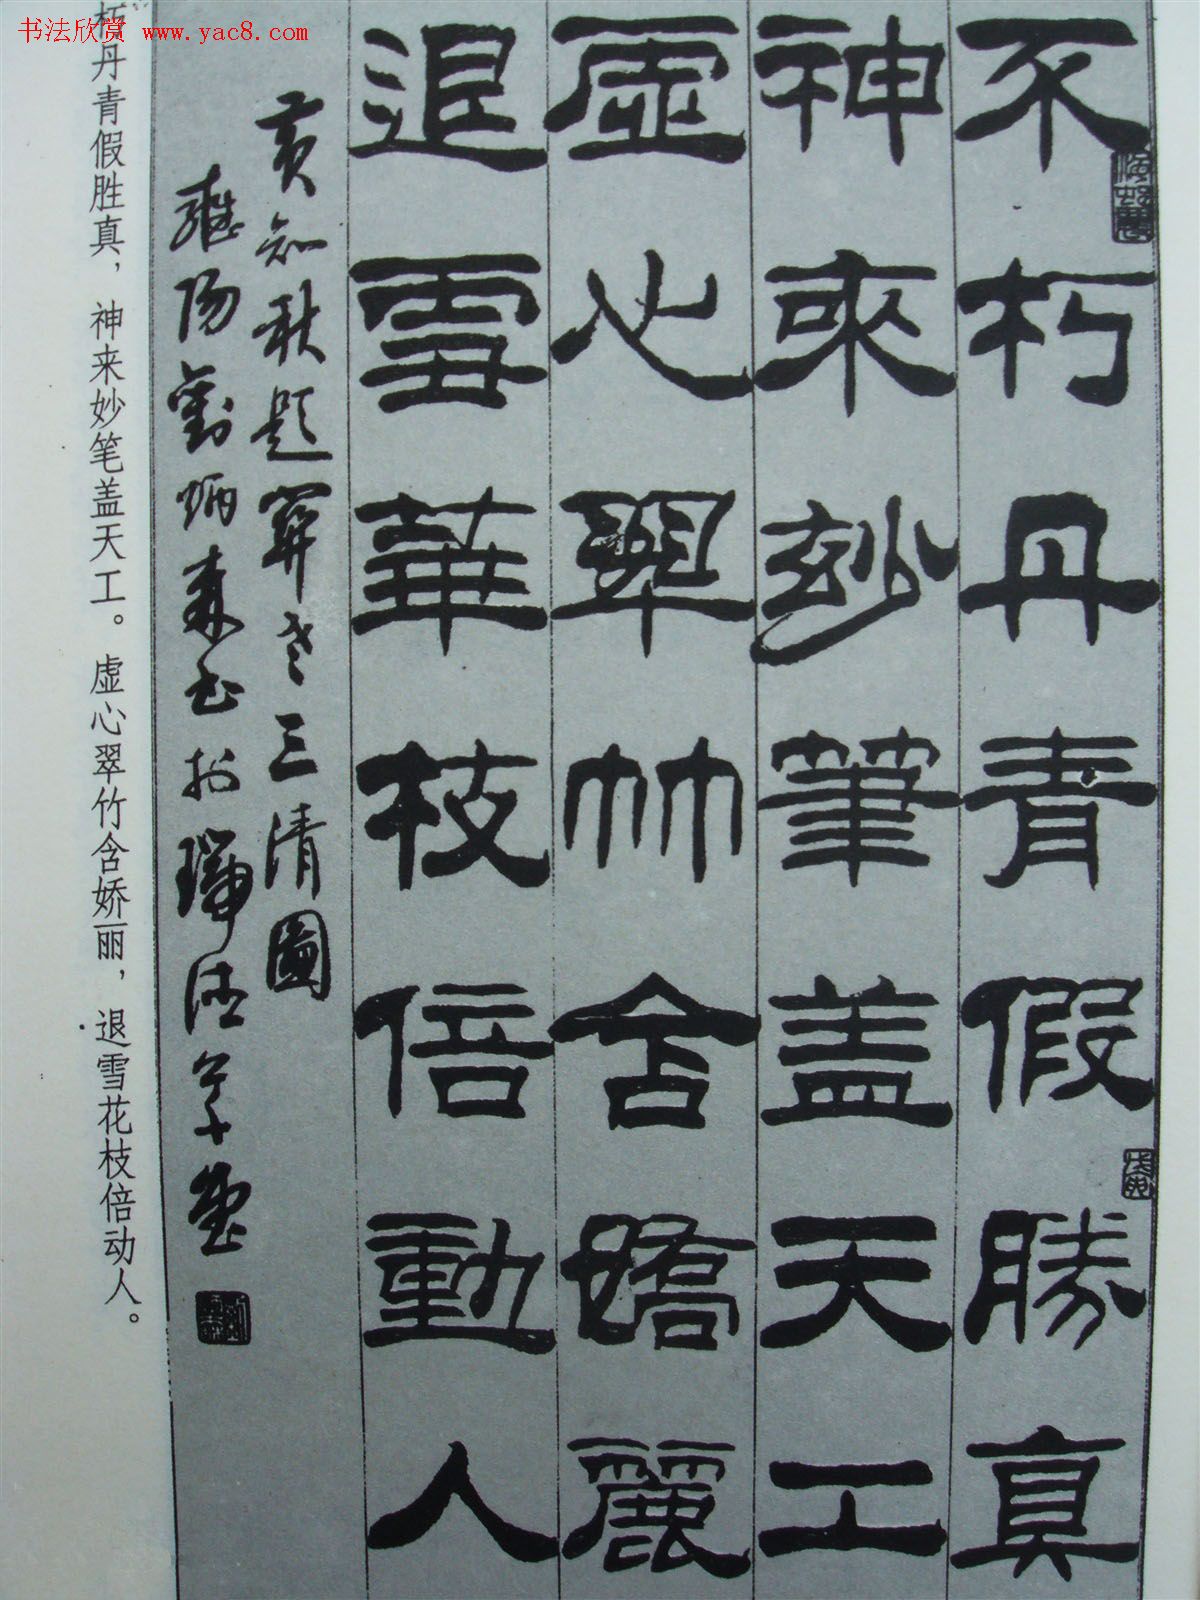 书法欣赏 www.yac8.com
不朽丹青假勝真
神來妙筆蓋天工
虛心翠竹含嬌麗
退雪華枝倍動人
黄知秋題寒之三清圖
雍陽劉炳森書於
朽丹青假胜真，神来妙笔盖天工。虚心翠竹含娇丽，退雪花枝倍动人。